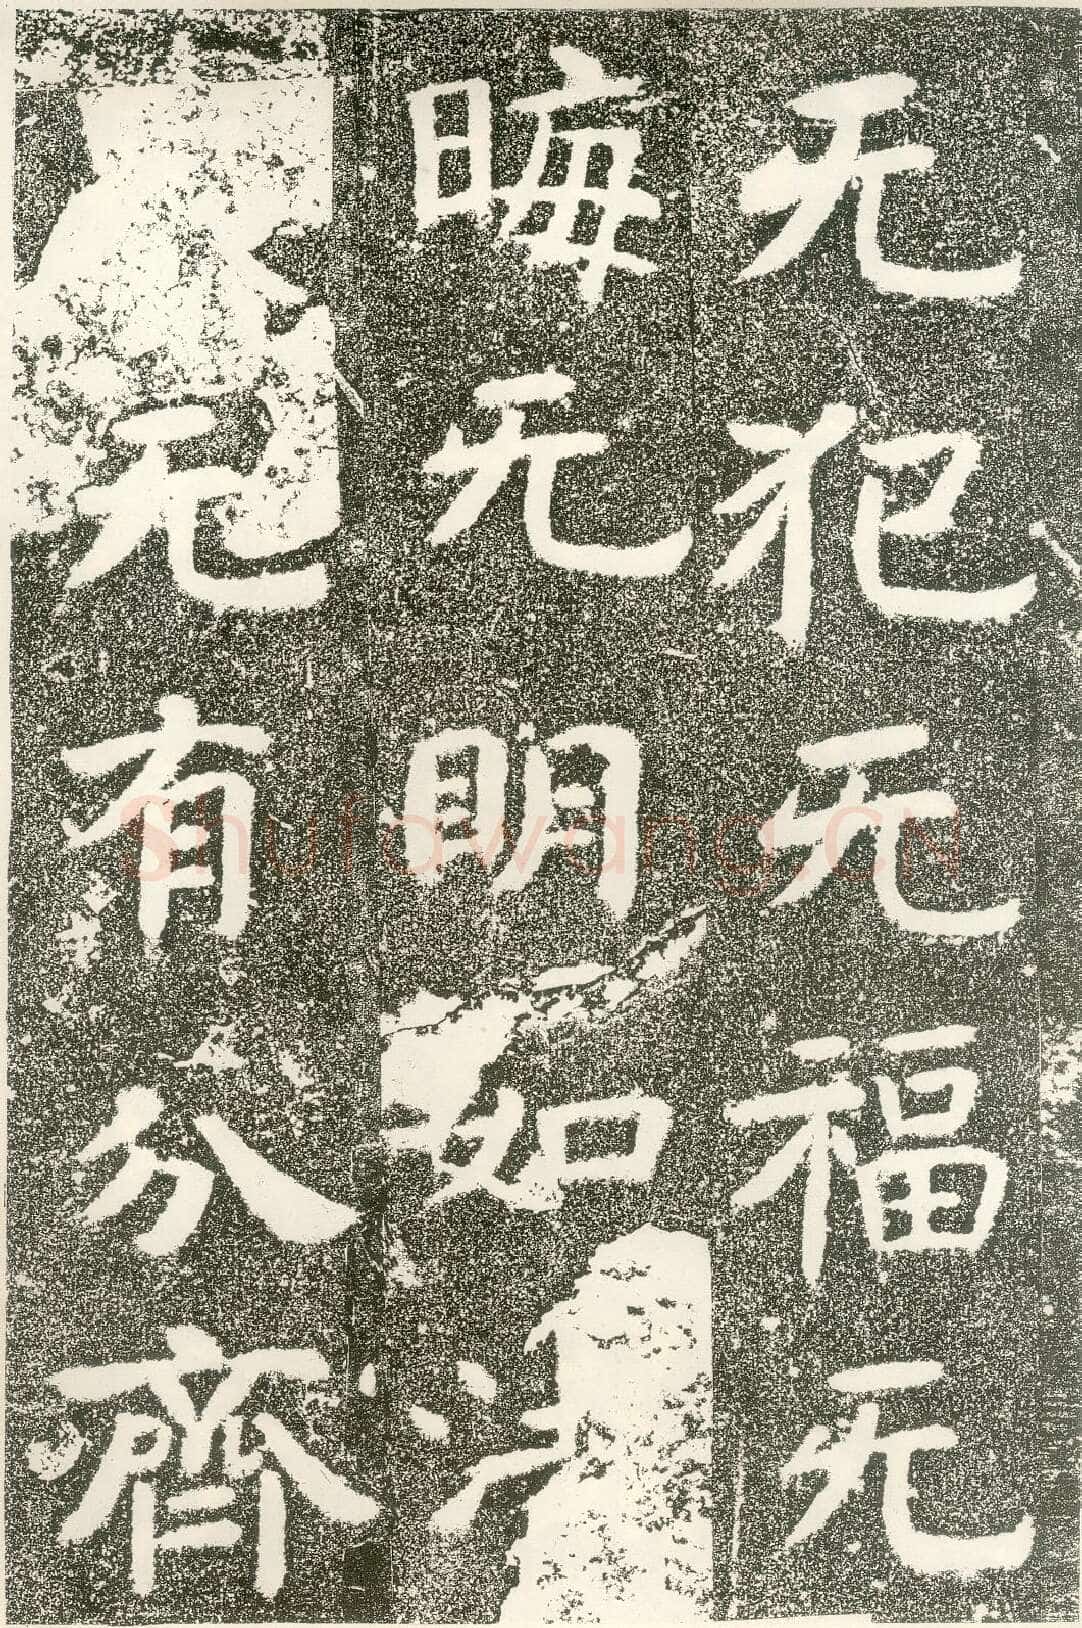 无犯无福无
晦无明如法
无有分齊
Shufawang.CN